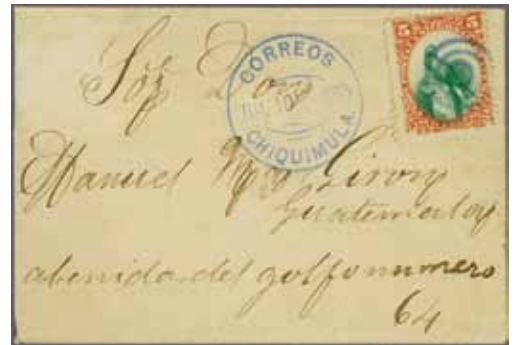 5 5
CORREOS
JUL 10
CHIQUIMULA
Don
Manuel Ma Giron
Guatemala
abenida del golfo numero
64